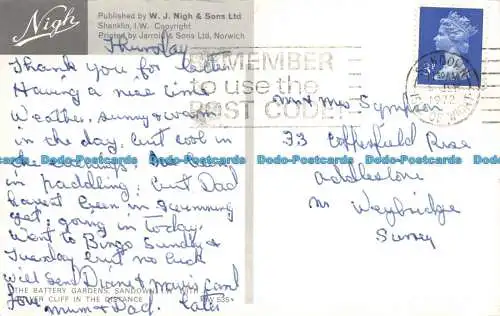 Nigh
Published by W. J. Nigh & Sons Ltd
Shanklin, I.W. Copyright
Printed by Jarrold & Sons Ltd, Norwich
Thursday
Thank you for letter
Having a nice time
Weather, sunny & warm
in the day, but cool in
the evenings,
in paddling, but Dad
havent been in swimming
yet, going in today.
Went to Bingo Sunday &
Tuesday but no luck
will send Diane & card
Love Mum & Dad. later
THE BATTERY GARDENS, SANDOWN, I.W. WITH
CULVER CLIFF IN THE DISTANCE
REMEMBER
to use the
POST CODE
SANDOWN
1972
ISLE OF WIGHT
Mr and Mrs Sympson
33 Copperfield Rise
Addlestone
Nr Weybridge
Surrey
Dodo-Postcards.com